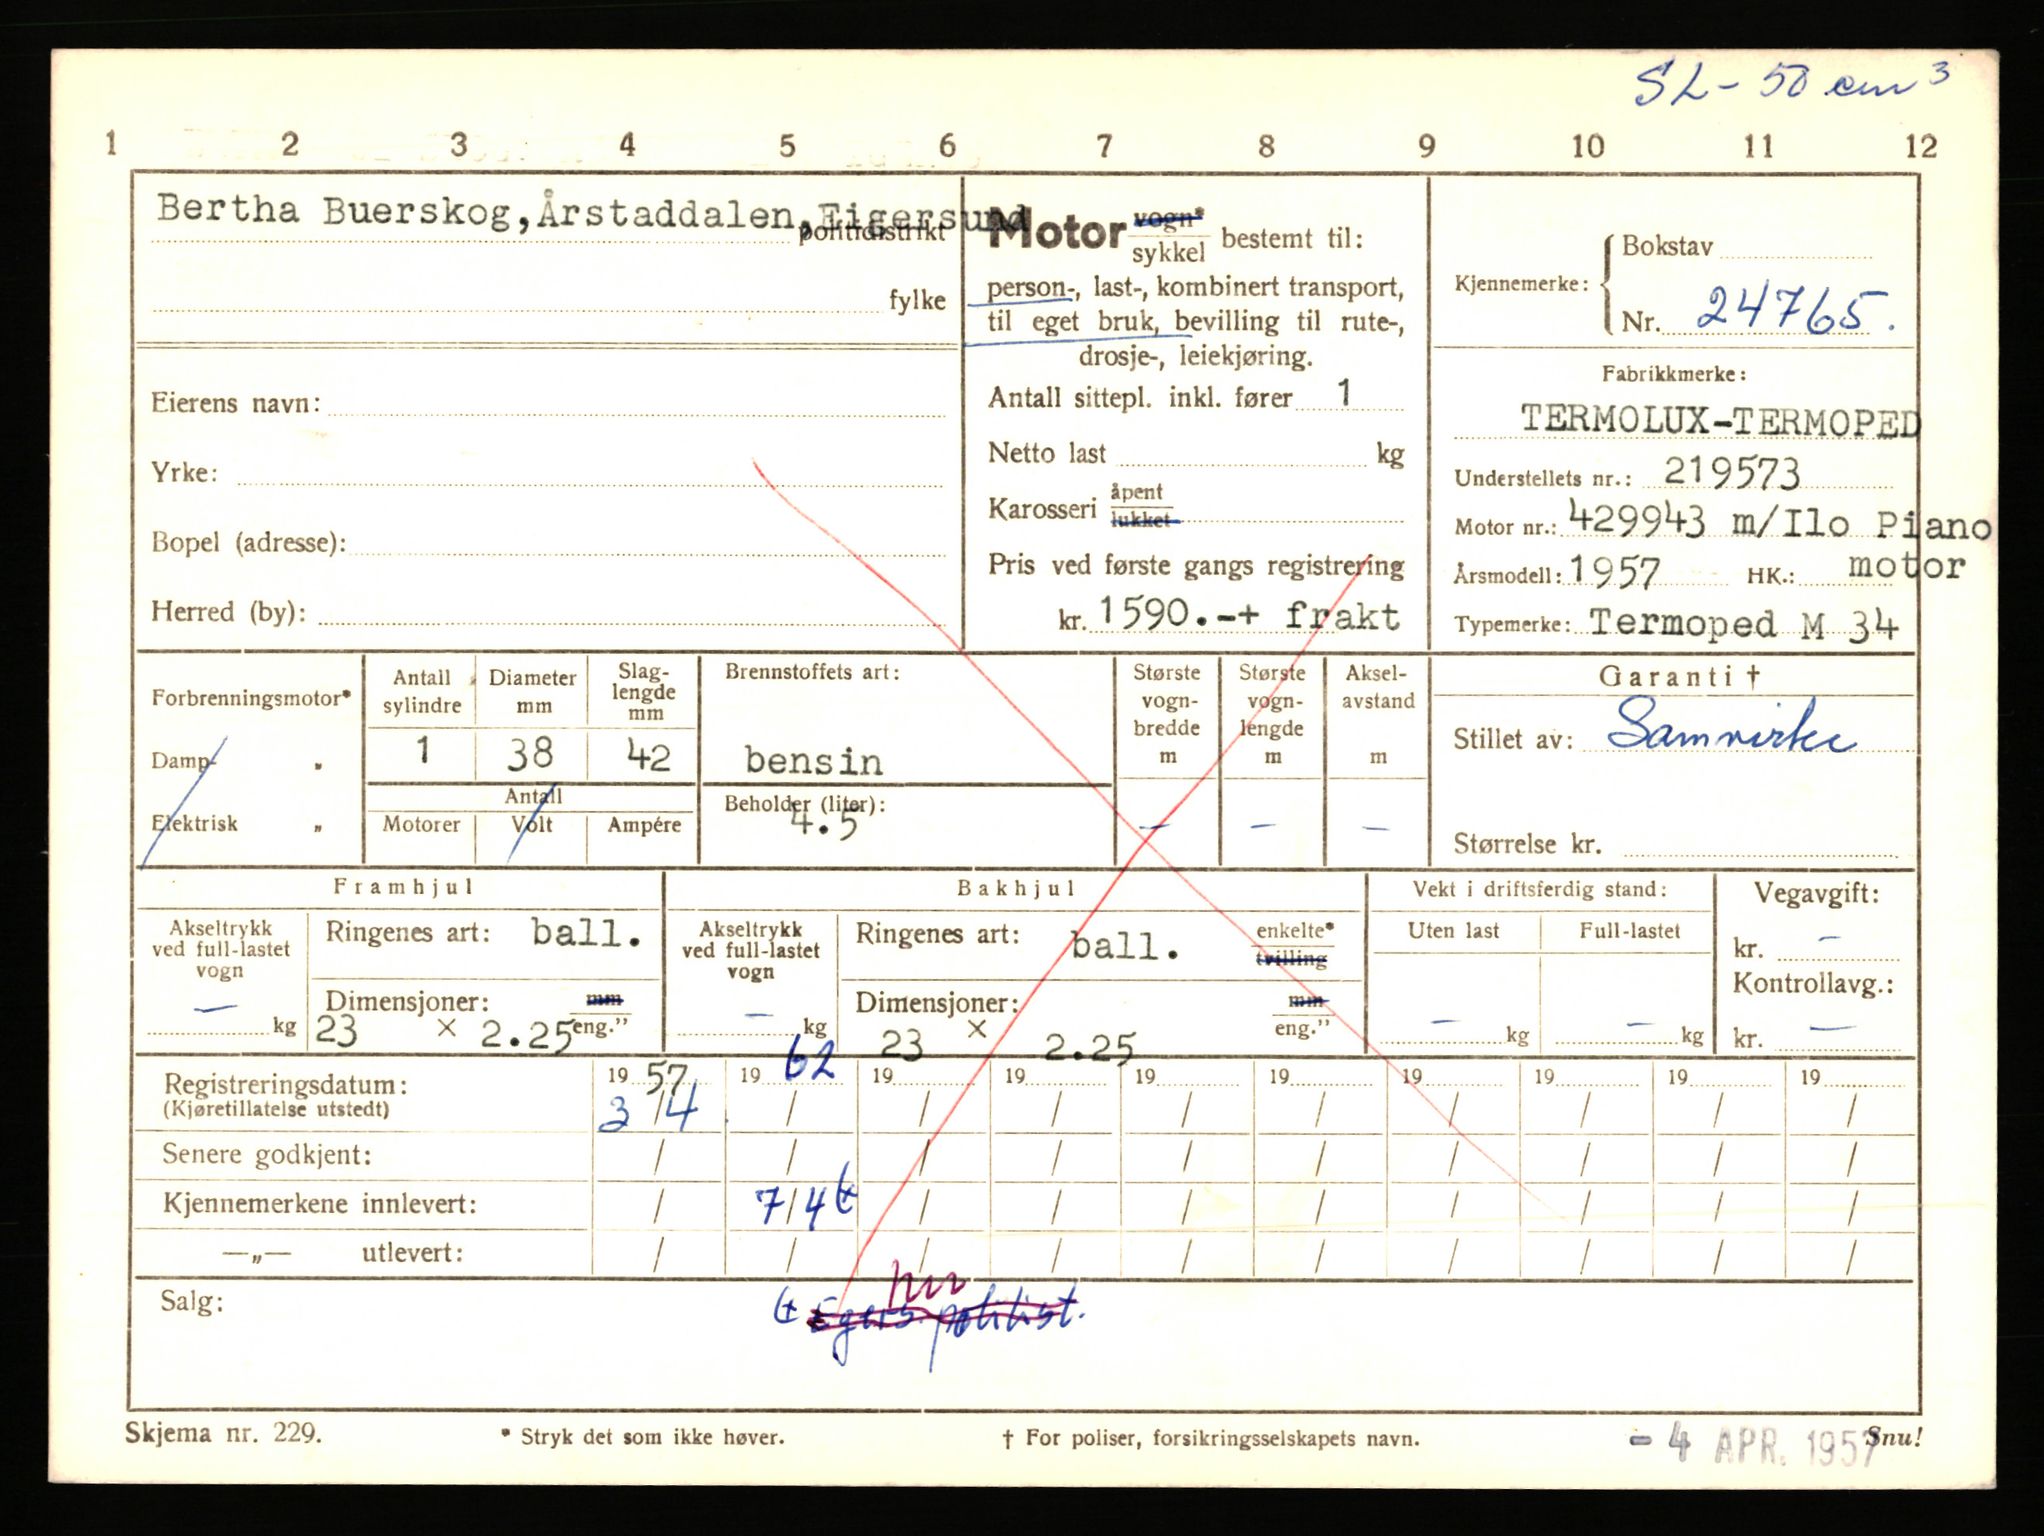 SL - 50 cm³
1 2 3 4 5 6 7 8 9 10 11 12
Bertha Buerskog, Årstaddalen, Eigersund
politidistrikt
fylke
Eierens navn:
Yrke:
Bopel (adresse):
Herred (by):
Motor vogn* sykkel bestemt til:
person-, last-, kombinert transport,
til eget bruk, bevilling til rute-,
drosje-, leiekjøring.
Antall sittepl. inkl. fører 1
Netto last kg
Karosseri åpent lukket
Pris ved første gangs registrering
kr. 1590.-+ frakt
Kjennemerke: Bokstav
Nr. 24765.
Fabrikkmerke:
TERMOLUX-TERMOPED
Understellets nr.: 219573
Motor nr.: 429943 m/Ilo Piano
Årsmodell: 1957 HK.: motor
Typemerke: Termoped M 34
Forbrenningsmotor*
Damp- „
Elektrisk „
Antall sylindre
Diameter mm
Slag-lengde mm
1 38 42
Antall
Motorer Volt Ampére
Brennstoffets art:
bensin
Beholder (liter):
4.5
Største vogn-bredde m
Største vogn-lengde m
Aksel-avstand m
— — —
Garanti †
Stillet av: Samvirke
Størrelse kr.
Framhjul
Akseltrykk ved full-lastet vogn
— kg
Ringenes art: ball.
Dimensjoner: mm eng.”
23 × 2.25
Bakhjul
Akseltrykk ved full-lastet vogn
— kg
Ringenes art: ball. enkelte* tvilling
Dimensjoner: mm eng.”
23 × 2.25
Vekt i driftsferdig stand:
Uten last Full-lastet
— kg — kg
Vegavgift:
kr. —
Kontrollavg.:
kr. —
Registreringsdatum: 19 57 19 62 19 19 19 19 19 19 19 19
(Kjøretillatelse utstedt) 3/4 / / / / / / / / /
Senere godkjent: / / / / / / / / / /
Kjennemerkene innlevert: / 7/4 / / / / / / / /
—„— utlevert: / / / / / / / / / /
Salg:
Egers politist.
Skjema nr. 229.
* Stryk det som ikke høver.
† For poliser, forsikringsselskapets navn.
- 4 APR. 1957
Snu!